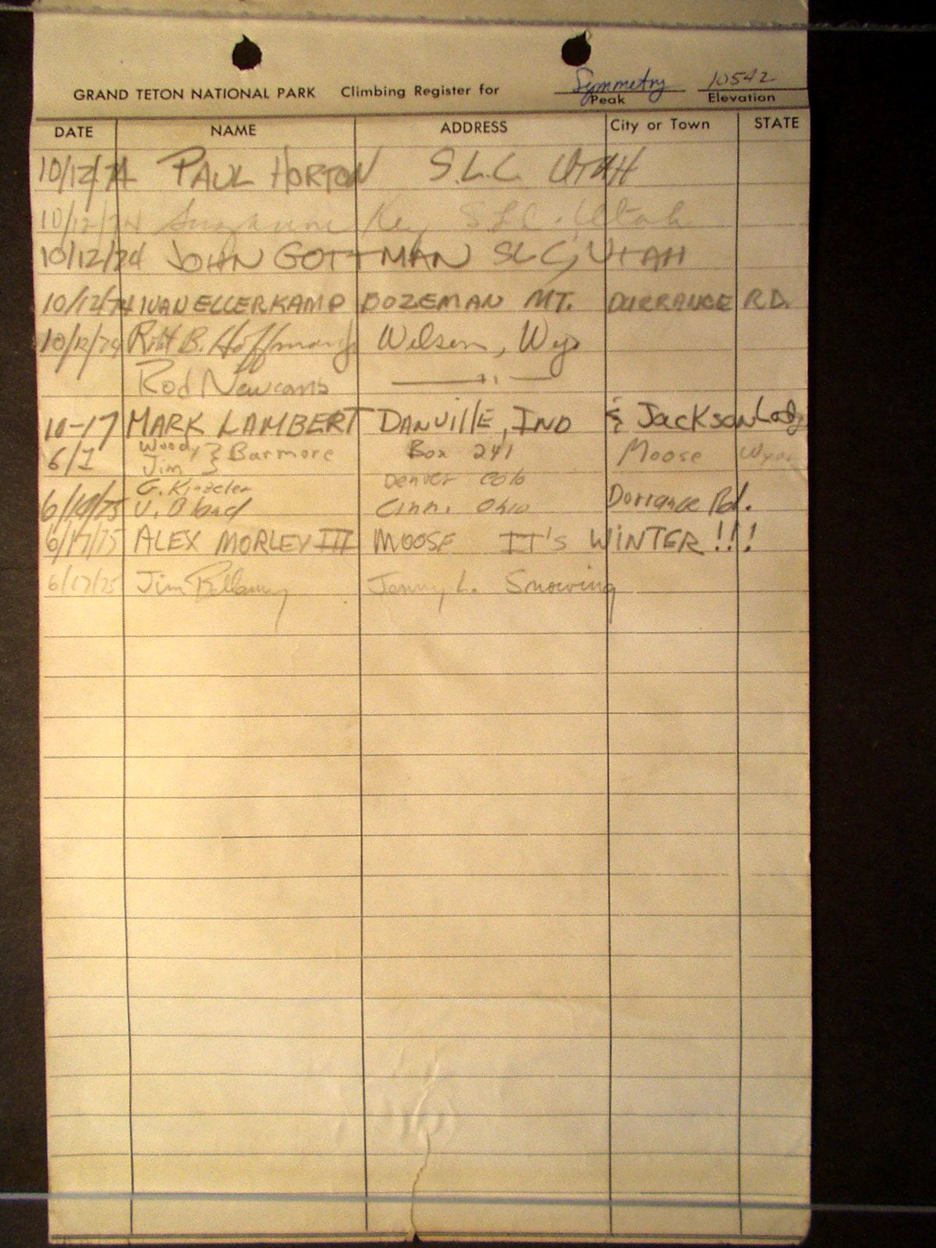 GRAND TETON NATIONAL PARK Climbing Register for Symmetry 10542
Peak Elevation
DATE NAME ADDRESS City or Town STATE
10/12/74 PAUL HORTON S.L.C. UTAH
10/12/74 Suzanne Key SLC, Utah
10/12/74 JOHN GOTTMAN SLC, UTAH
10/12/74 IVAN ELLERKAMP BOZEMAN MT. DURRANCE RD.
10/12/74 Robt B. Hoffman Wilson, Wyo
Rod Newcomb — " —
10-17 MARK LAMBERT DANVILLE, IND & Jackson
6/1 Woody & Jim } Barmore Box 241 Moose Wyo
G. Kinzeler Denver Colo
6/14/75 V. Bland Cinn. Ohio Dorrance Rd.
6/17/75 ALEX MORLEY III MOOSE IT'S WINTER!!!
6/17/75 Jim Jenny L. Snowing